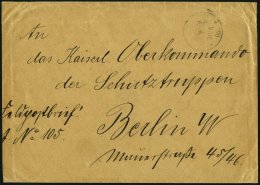 An
das Kaiserl. Oberkommando
der Schutztruppen
Feldpostbrief!
No 105
Berlin W
Mauerstraße 45/46.